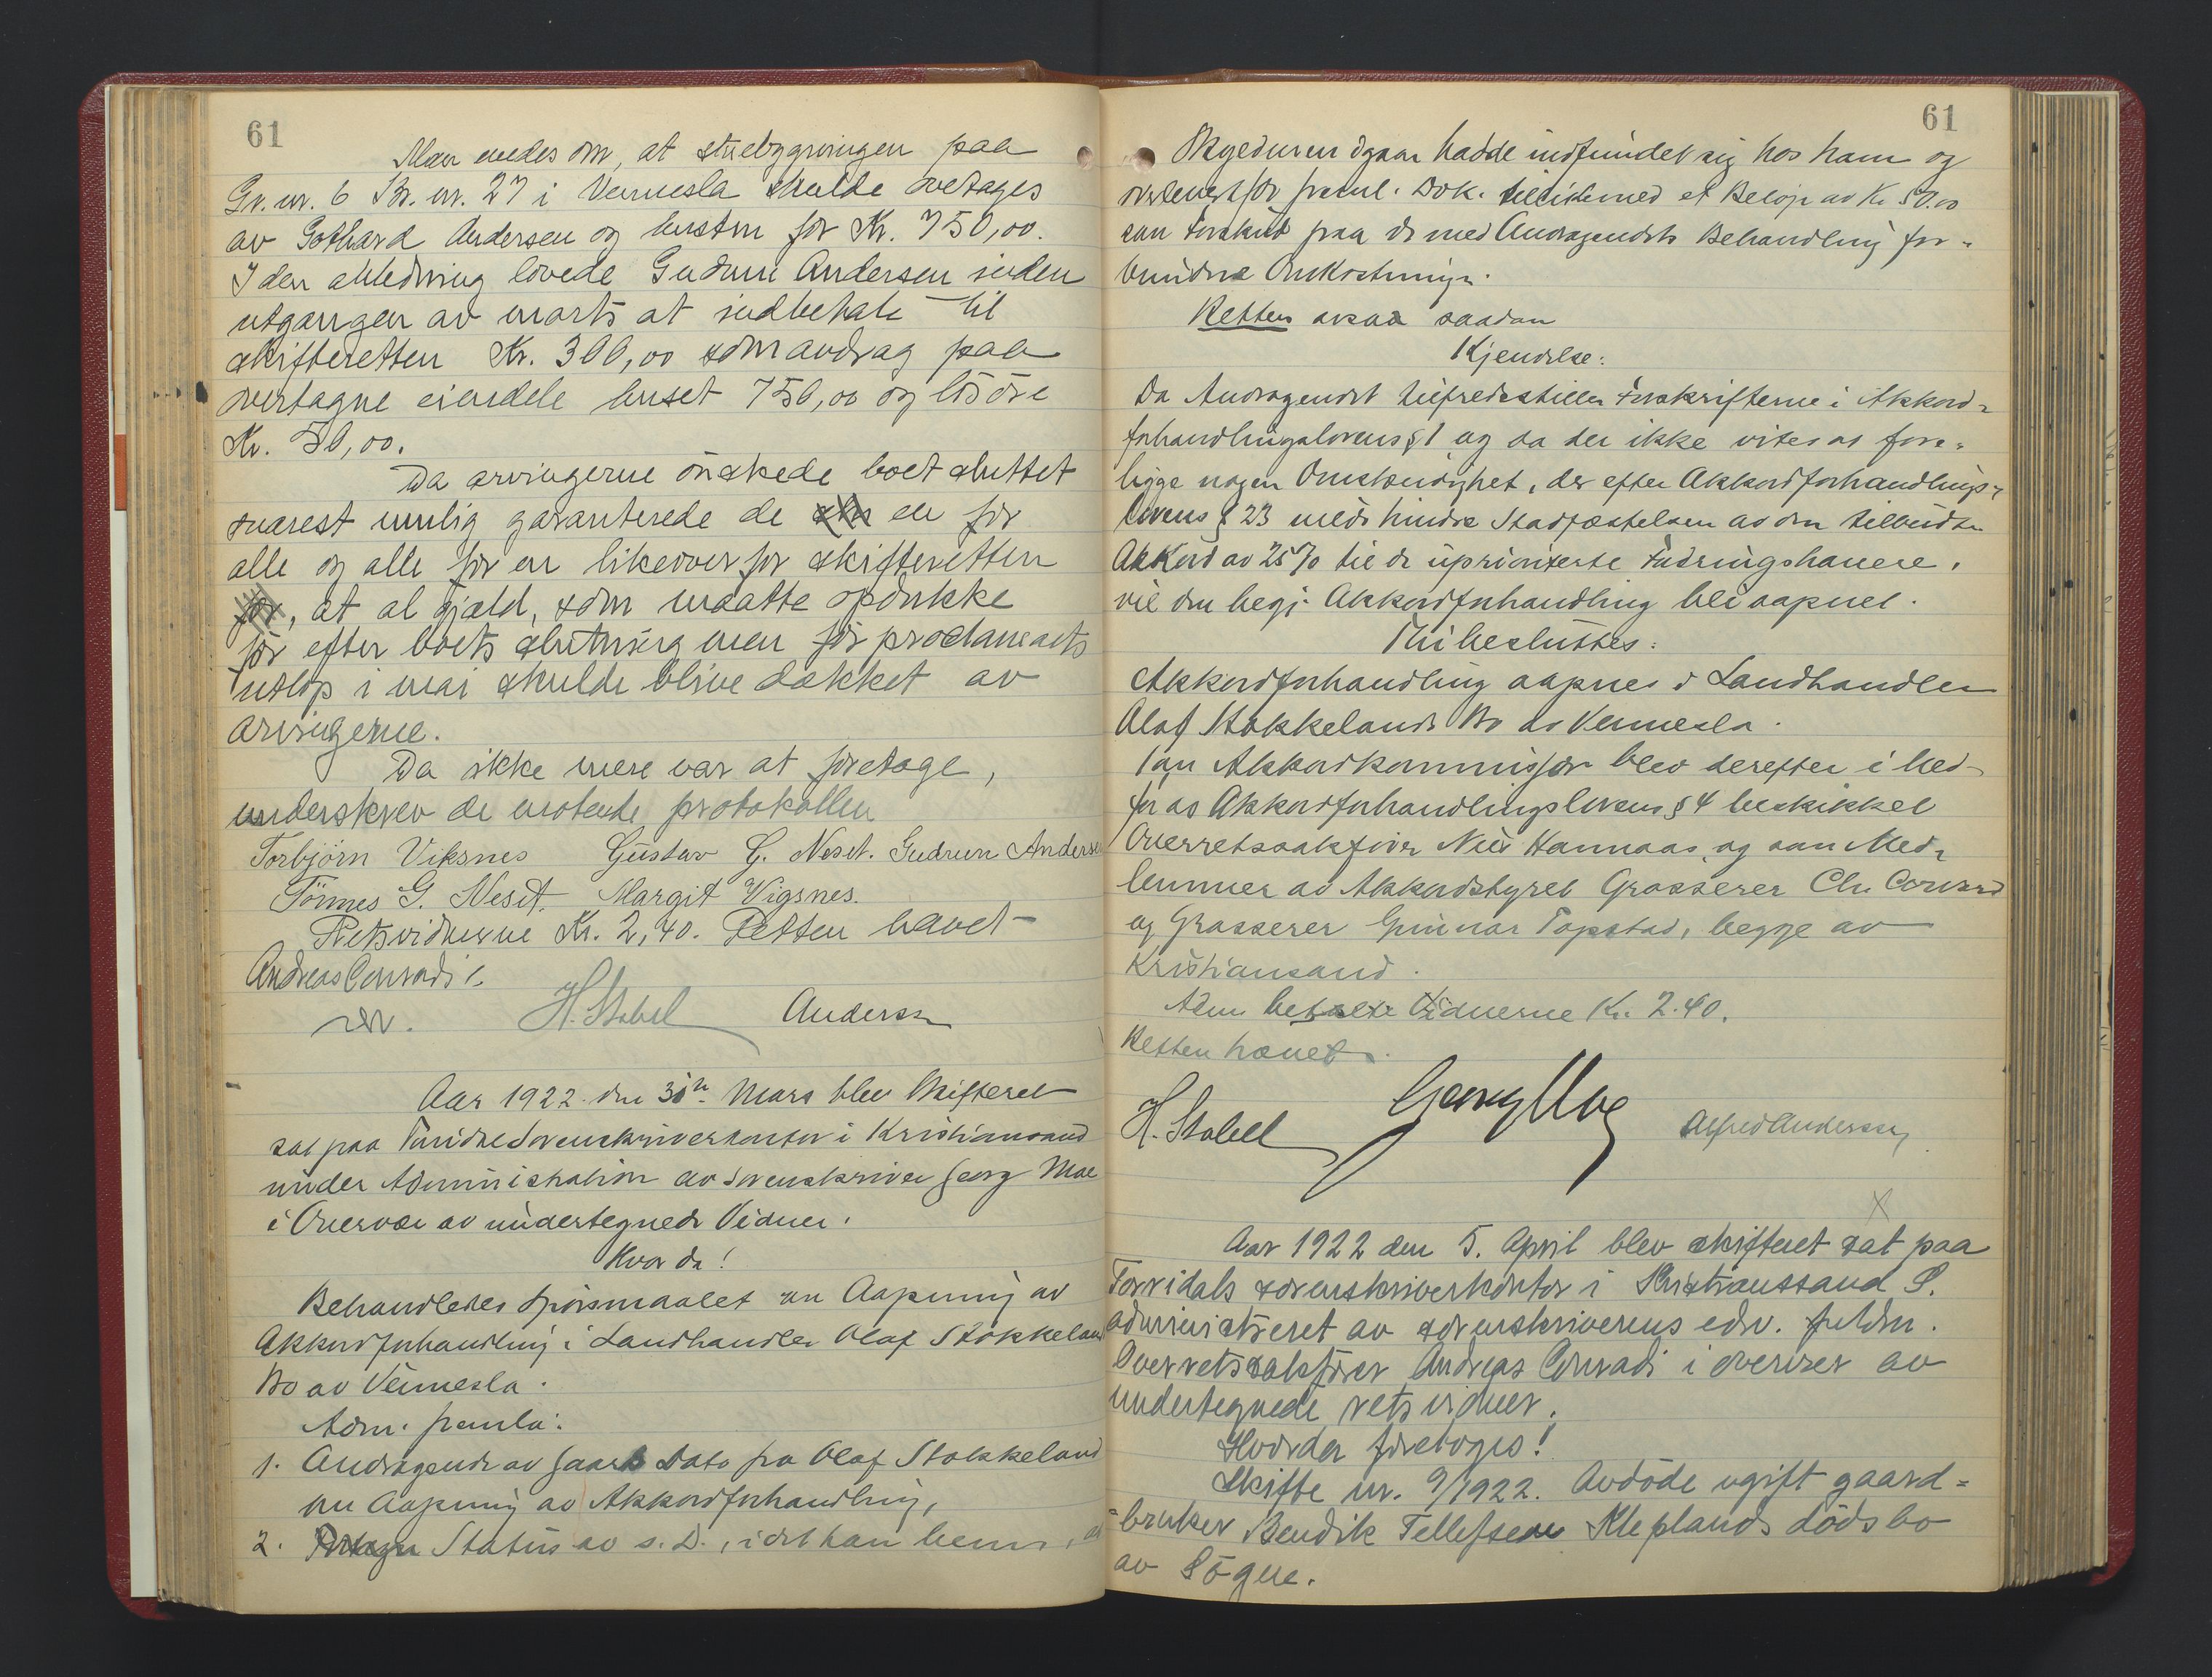 61
Man enedes om, at stuebygningen paa
Gr. nr. 6 Br. nr. 27 i Vennesla skulde overtages
av Gothard Andersen og hustru for Kr. 750,00.
I den anledning lovede Gudrun Andersen inden
utgangen av marts at indbetale til
skifteretten Kr. 300,00 som avdrag paa
overtagne eiendele huset 750,00 og løsøre
Kr. 50,00.
Da arvingerne ønskede boet sluttet
snarest mulig garanterede de en for
alle og alle for en likeoverfor skifteretten
for, at al gjæld, som maatte opdukke
før efter boets slutning men før proclamaets
utløp i mai skulde blive dækket av
arvingerne.
Da ikke mere var at foretage,
underskrev de møtende protokollen
Torbjörn Viksnes Gustav G. Neset. Gudrun Andersen
Tönnes G. Neset. Margit Vigsnes.
Retsvidnerne Kr. 2,40. Retten hævet
Andreas Conradi
H. Stabel Andersen
Aar 1922 den 30te Mars blev Skifteret
sat paa Torridal Sorenskriverkontor i Kristiansand
under Administration av Sorenskriver Georg Moe
i Overvær av undertegnede Vidner.
Hvor da!
Behandledes Spørsmaalet om Aapning av
Akkordforhandling i Landhandler Olaf Stokkelands
Bo av Vennesla.
Adm. fremla:
1. Andragende av Gaars Dato fra Olaf Stokkeland
om Aapning av Akkordforhandling,
2. Status av s. D., idet han bem., at
61
Skyldneren igaar hadde indfundet sig hos ham og
overlevert for freml. Dok. tillikemed et Beløp av Kr. 50.00
som Forskud paa de med Andragendets Behandling for-
bundne Omkostninger.
Retten avsaa saadan
Kjendelse:
Da Andragendet tilfredsstiller Forskrifterne i Akkord-
forhandlingslovens § 1 og da der ikke vites at fore-
ligge nogen Omstændighet, der efter Akkordforhandlings-
lovens § 23 vilde hindre Stadfæstelsen av den tilbudte
Akkord av 25% til de uprioriterte Fordringshavere,
vil den begj. Akkordforhandling bli aapnet.
Thi besluttes:
Akkordforhandling aapnes i Landhandler
Olaf Stokkelands Bo av Vennesla.
Som Akkordkommissær blev derefter i Med-
før av Akkordforhandlingslovens § 4 beskikket
Overretssakfører Nils Hannaas, og som Med-
lemmer av Akkordstyret Grosserer Chr. Conrad
og Grosserer Gunnar Tapstad, begge av
Kristiansand.
Adm. betalte Vidnerne Kr. 2.40.
Retten hævet.
H. Stabell Georg Moe Alfred Andersen
X
Aar 1922 den 5. April blev skifteret sat paa
Torridals sorenskriverkontor i Kristianssand S.
administreret av sorenskriverens edsv. fuldm.
Overretssakfører Andreas Conradi i overvær av
undertegnede retsvidner.
Hvorda foretoges!
Skifte nr. 9/1922. Avdøde ugift gaard=
=bruker Bendik Tellefsen Kleplands dødsbo
av Søgne.